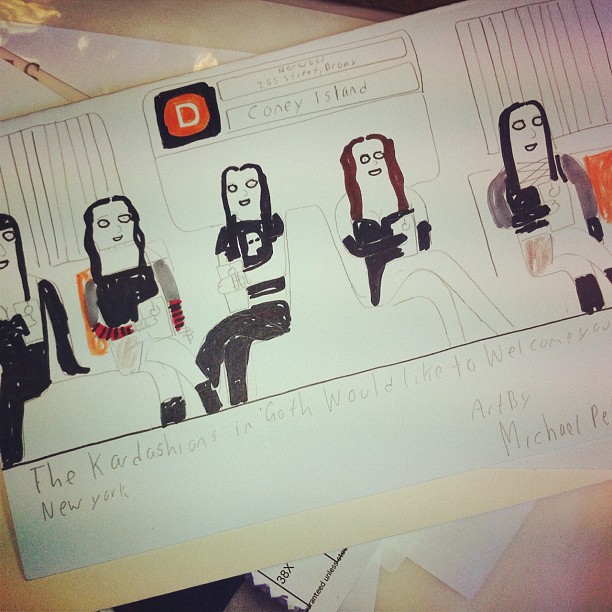 D
Norwood
205 Street, Bronx
Coney Island
The Kardashians in Goth Would like to Welcome you
New york
Art By
Michael Pe
38X
ranteed unless